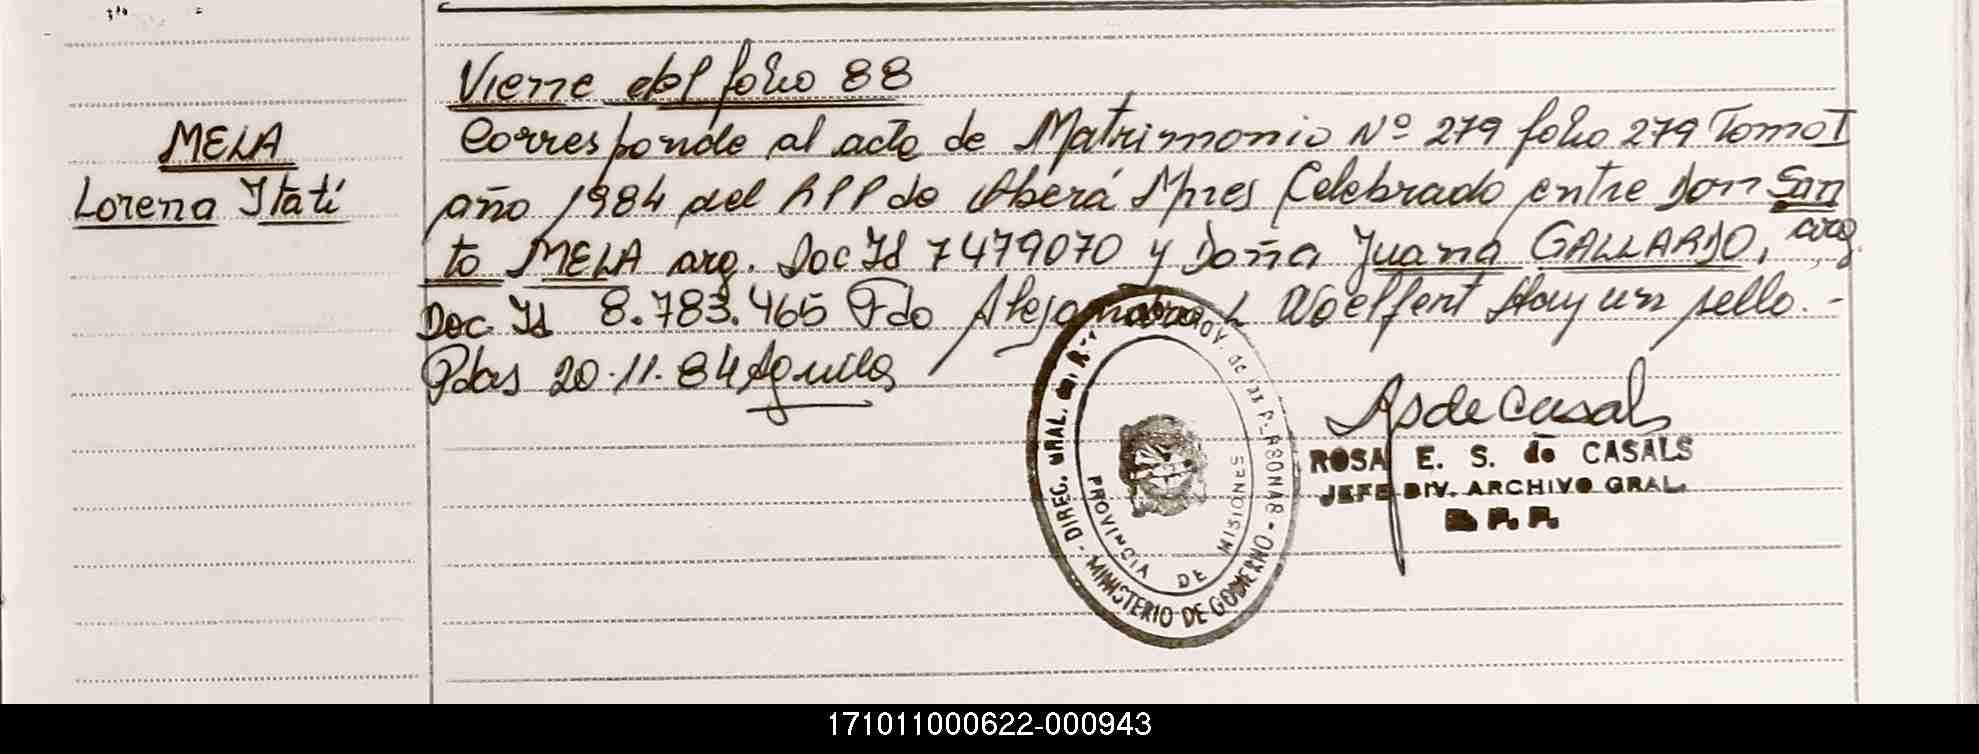 Viene del folio 88
MELA
Lorena Itatí
Corresponde al acta de Matrimonio Nº 279 folio 279 Tomo I
año 1984 del RPP de Oberá Mnes Celebrado entre Don San
to MELA arg. Doc Id 7479070 y Doña Juana GALLARDO, arg.
Doc. Id 8.783.465 Fdo Alejandro L Woelfert Hay un sello.-
Pdas 20.11.84 Aguilar
ROSA E. S. de CASALS
JEFE DIV. ARCHIVO GRAL.
DIREC. GRAL. DEL PROV. DE LAS PERSONAS - MINISTERIO DE GOBIERNO -
PROVINCIA DE MISIONES
171011000622-000943